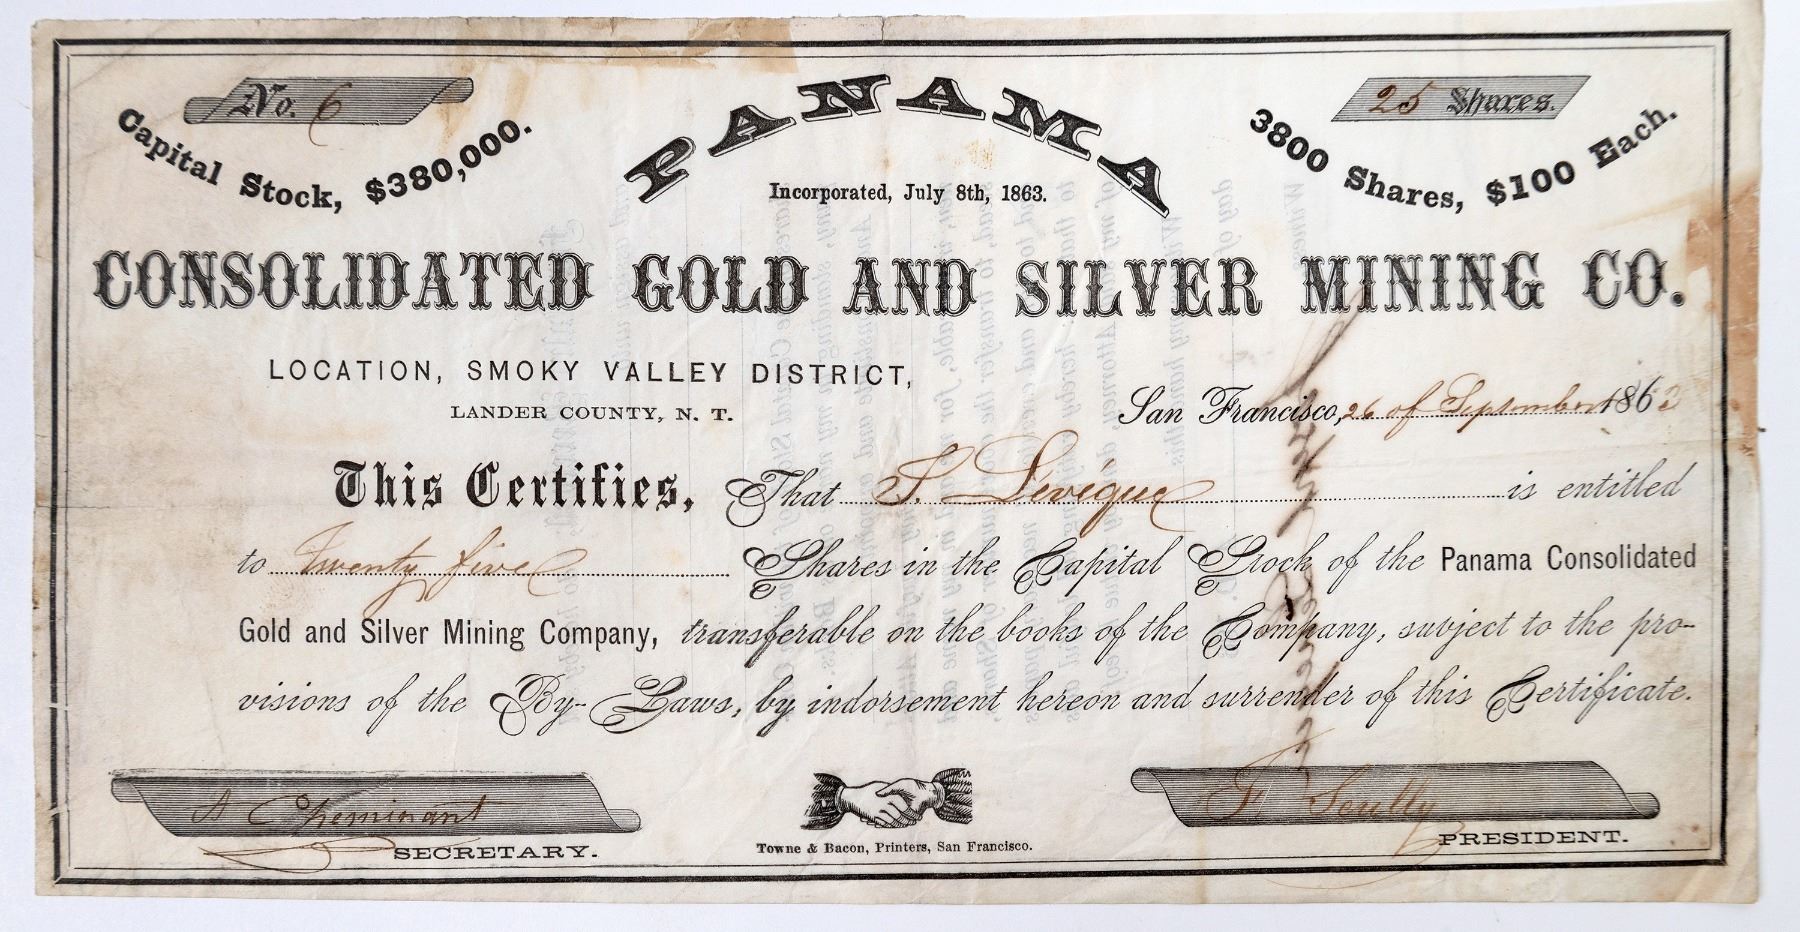 No. 6
25 Shares.
Capital Stock, $380,000.
PANAMA
3800 Shares, $100 Each.
Incorporated, July 8th, 1863.
CONSOLIDATED GOLD AND SILVER MINING CO.
LOCATION, SMOKY VALLEY DISTRICT,
LANDER COUNTY, N. T.
San Francisco, 26 of September 1863
This Certifies, That S. Levéque is entitled
to twenty five Shares in the Capital Stock of the Panama Consolidated
Gold and Silver Mining Company, transferable on the books of the Company, subject to the pro-
visions of the By-Laws, by indorsement hereon and surrender of this Certificate.
A Cheminant
SECRETARY.
F. Scully
PRESIDENT.
Towne & Bacon, Printers, San Francisco.